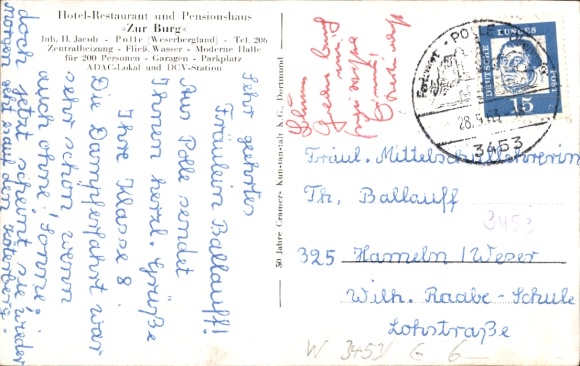 Hotel-Restaurant und Pensionshaus
»Zur Burg«
Inh. H. Jacob - Polle (Weserbergland) - Tel. 206
Zentralheizung - Fließ. Wasser - Moderne Halle
für 200 Personen - Garagen - Parkplatz
ADAC-Lokal und DCV-Station
Sehr geehrtes
Fräulein Ballauff!
Aus Polle sendet
Ihnen herzl. Grüße
Ihre Klasse 8.
Die Dampferfahrt war
sehr schön wenn
auch ohne Sonne;
doch jetzt scheint sie wieder
morgen geht's auf den Köterberg.
50 Jahre Cramers Kunstanstalt K.G., Dortmund
POLLE
28.9.
3453
DEUTSCHE BUNDESPOST
15
Fräul. Mittelschullehrerin
Th. Ballauff
3453
325 Hameln/Weser
Wilh. Raabe-Schule
Lohstraße
W 3453 G 6